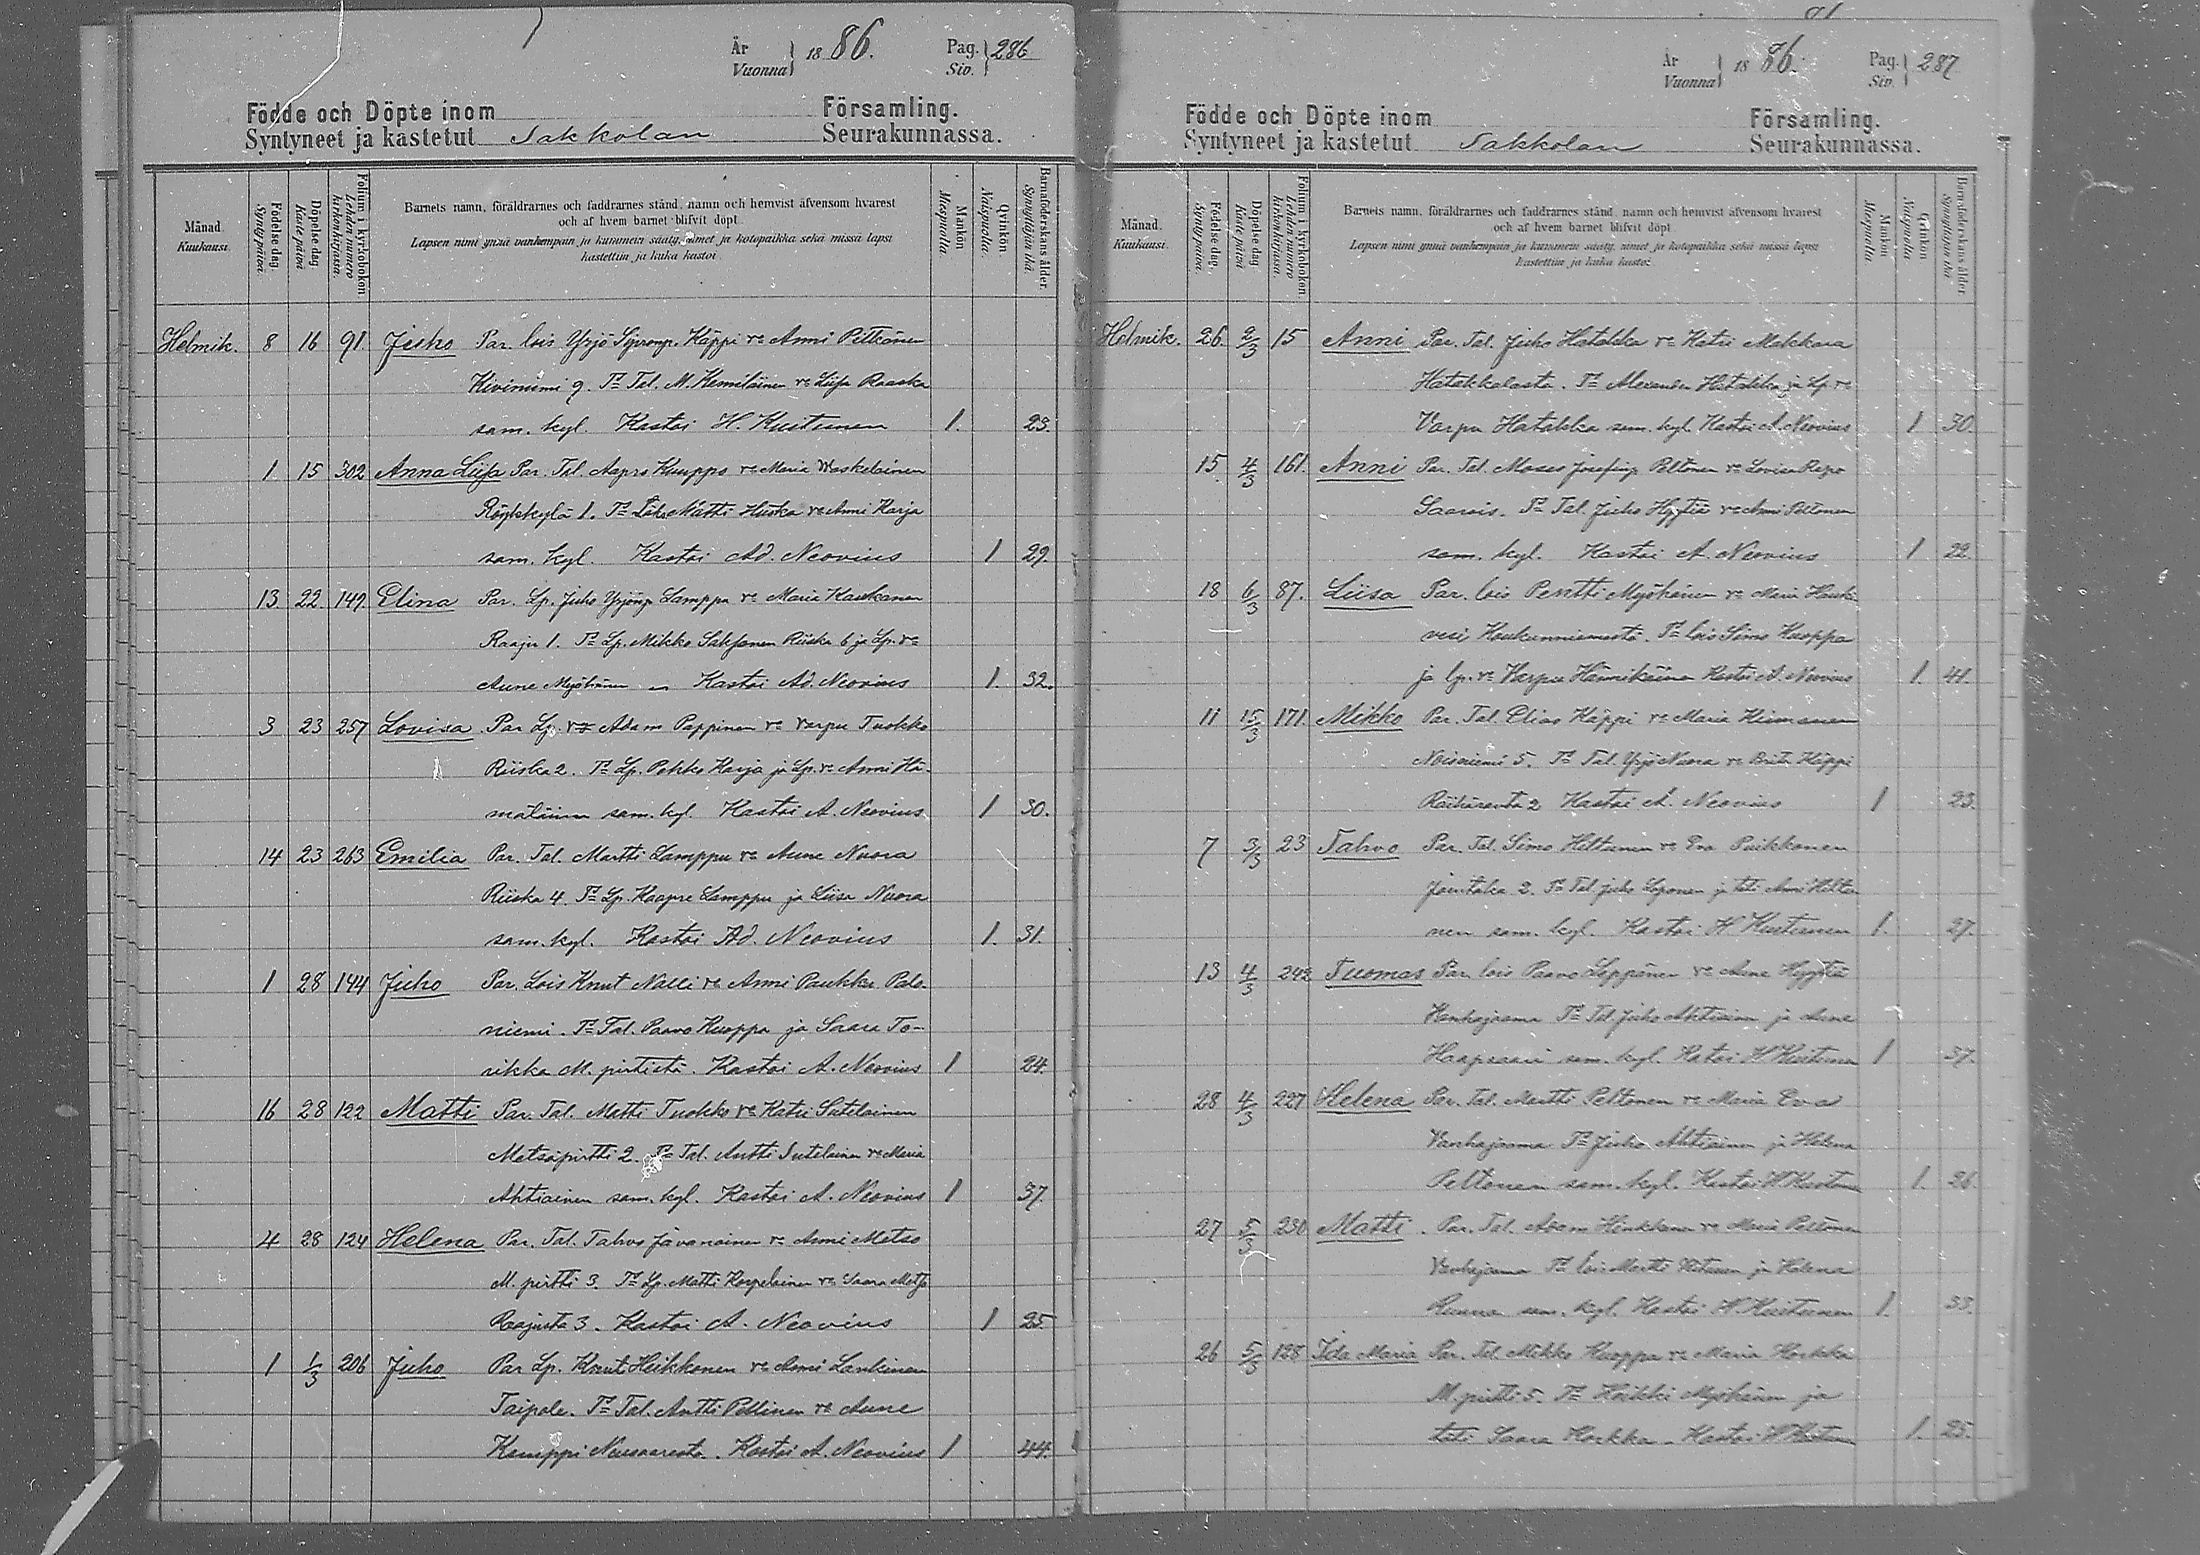 År
Vuonna } 18 86. Pag.
Siv. } 286
Födde och Döpte inom Församling.
Syntyneet ja kastetut Sakkolan Seurakunnassa.
Månad.
Kuukausi.
Födelse dag.
Syntypäivä.
Döpelse dag.
Kastepäivä
Folium i kyrkoboken.
Lehden numero
kirkonkirjassa.
Barnets namn, föräldrarnes och faddrarnes stånd, namn och hemvist äfvensom hvarest
och af hvem barnet blifvit döpt.
Lapsen nimi ynnä vanhempain ja kummein sääty, nimet ja kotopaikka sekä missä lapsi
kastettiin ja kuka kastoi.
Mankön.
Miespuolia.
Qvinkön.
Naispuolia.
Barnaföderskans ålder.
Synnyttäjän ikä.
Helmik. 8 16 91 Juho Par. lois Yrjö Käppi vo Anni Pitkänen
Kiviniemi 9. Tt Tal. M. Hemiläinen vo Liisa Raaska
sam. kyl. Kastoi H. Kustunen 1. 23.
1 15 302 Anna Liisa Par. Tal. Aapro Kauppo vo Maria Waskelainen
Röykkylä 1. Tt Matti Huska vo Anni Karja
sam. kyl. Kastoi Ad. Neovius 1 29.
13 22 149. Elina Par. Lp. Juho Yrjönp. Lamppu vo Maria Kaukanen
Raaju 1. Tt Lp. Mikko Saksanen Riiska 6 ja Lp. vo
Aune Myöhänen Kastoi Ad. Neovius 1. 32.
3 23 257 Lovisa Par Lp. Adam Pappinen vo Varpu Tuokko
Riiska 2. Tt Lp. Pekko Karja ja Lp. vo Anni Hä-
mäläinen sam. kyl. Kastoi A. Neovius 1 30.
14 23 263 Emilia Par. Tal. Martti Lamppu vo Aune Nuora
Riiska 4. Tt Lp. Kaapre Lamppu ja Liisa Nuora
sam. kyl. Kastoi Ad. Neovius 1. 31.
1 28 144 Juho Par. Lois Knut Nalli vo Anni Paukku Palo-
niemi. Tt Tal. Paavo Kuoppa ja Saara To-
rikka M. pirtistä. Kastoi A. Neovius 1 24.
16 28 122 Matti Par. Tal. Matti Tuokko vo Katri Sutelainen
Metsäpirtti 2. Tt Tal. Antti Sutelainen vo Maria
Ahtiainen sam. kyl. Kastoi A. Neovius 1 37.
4 28 124 Helena Par. Tal. Tahvo Javanainen vo Anni Metso
M. pirtti 3. Tt Lp. Matti Korpelainen vo Saara Metso
Raajusta 3. Kastoi A. Neovius 1 25.
1 1/3 206 Juho Par Lp. Knut Heikkonen vo Anni Lankinen
Taipale. Tt Tal. Antti Pellinen vo Aune
Kamppi Kastoi A. Neovius 1 44.
År
Vuonna } 18 86. Pag.
Siv. } 287
Födde och Döpte inom Församling.
Syntyneet ja kastetut Sakkolan Seurakunnassa.
Månad.
Kuukausi.
Födelse dag.
Syntypäivä.
Döpelse dag.
Kastepäivä
Folium i kyrkoboken.
Lehden numero
kirkonkirjassa.
Barnets namn, föräldrarnes och faddrarnes stånd, namn och hemvist äfvensom hvarest
och af hvem barnet blifvit döpt.
Lapsen nimi ynnä vanhempain ja kummein sääty, nimet ja kotopaikka sekä missä lapsi
kastettiin ja kuka kastoi.
Mankön
Miespuolia
Qvinkön
Naispuolia
Barnaföderskans ålder
Synnyttäjän ikä.
Helmik. 26. 2/3 15 Anni Par. Tal. Juho Hatakka vo Katri Mekkara
Hatakkalasta. Tt Alexander Hatakka ja Lp. vo
Varpu Hatakka sam. kyl. Kastoi A. Neovius 1 30.
15 4/3 161. Anni Par. Tal. Moses Josefinp. Peltonen vo Lovisa Repo
Saarois. Tt Tal. Juho Hyytiä vo Anni Peltonen
sam. kyl. Kastoi A. Neovius 1 22.
18 6/3 87. Liisa Par. lois Pentti Myöhänen vo Maria Hauki-
vesi Haukunniemestä. Tt lois Simo Kuoppa
ja lp. vo Varpu Hännikäinen Kastoi A. Neovius 1. 41.
11 15/3 171. Mikko Par. Tal. Elias Käppi vo Maria Hiimanen
Noisniemi 5. Tt Tal. Yrjö Nuora vo Brita Käppi
Räihäranta 2 Kastoi A. Neovius 1 23.
7 3/3 23 Tahvo Par. Tal. Simo Hiltunen vo Eva Puikkonen
2. Tt Tal. Juho Loponen ja tali Anni Hiltu-
nen sam. kyl. Kastoi H Kustunen 1. 27.
13 4/3 242 Tuomas Par. lois Paavo Leppänen vo Anna Hyytiä
Vanhajaama Tt Tal Juho Ahtiainen ja Anna
Haapsaari sam. kyl. Kastoi H Kustunen 1 37.
28 4/3 227 Helena Par. Tal. Martti Peltonen vo Maria Eva
Vanhajaama Tt Juho Ahtiainen ja Helena
Peltonen sam. kyl. Kastoi H Kustunen 1. 26
27 5/3 230 Matti. Par. Tal. Adam Hinkkanen vo Maria Peltonen
Vanhajaama Tt lois Martti ja Helena
sam. kyl. Kastoi H Kustunen 1. 33.
26 5/3 128 Ida Maria Par. Tal. Mikko Kuoppa vo Maria Horkka
M. pirtti 5. Tt Heikki Myöhänen ja
Saara Horkka. Kastoi H Kustunen 1. 25.